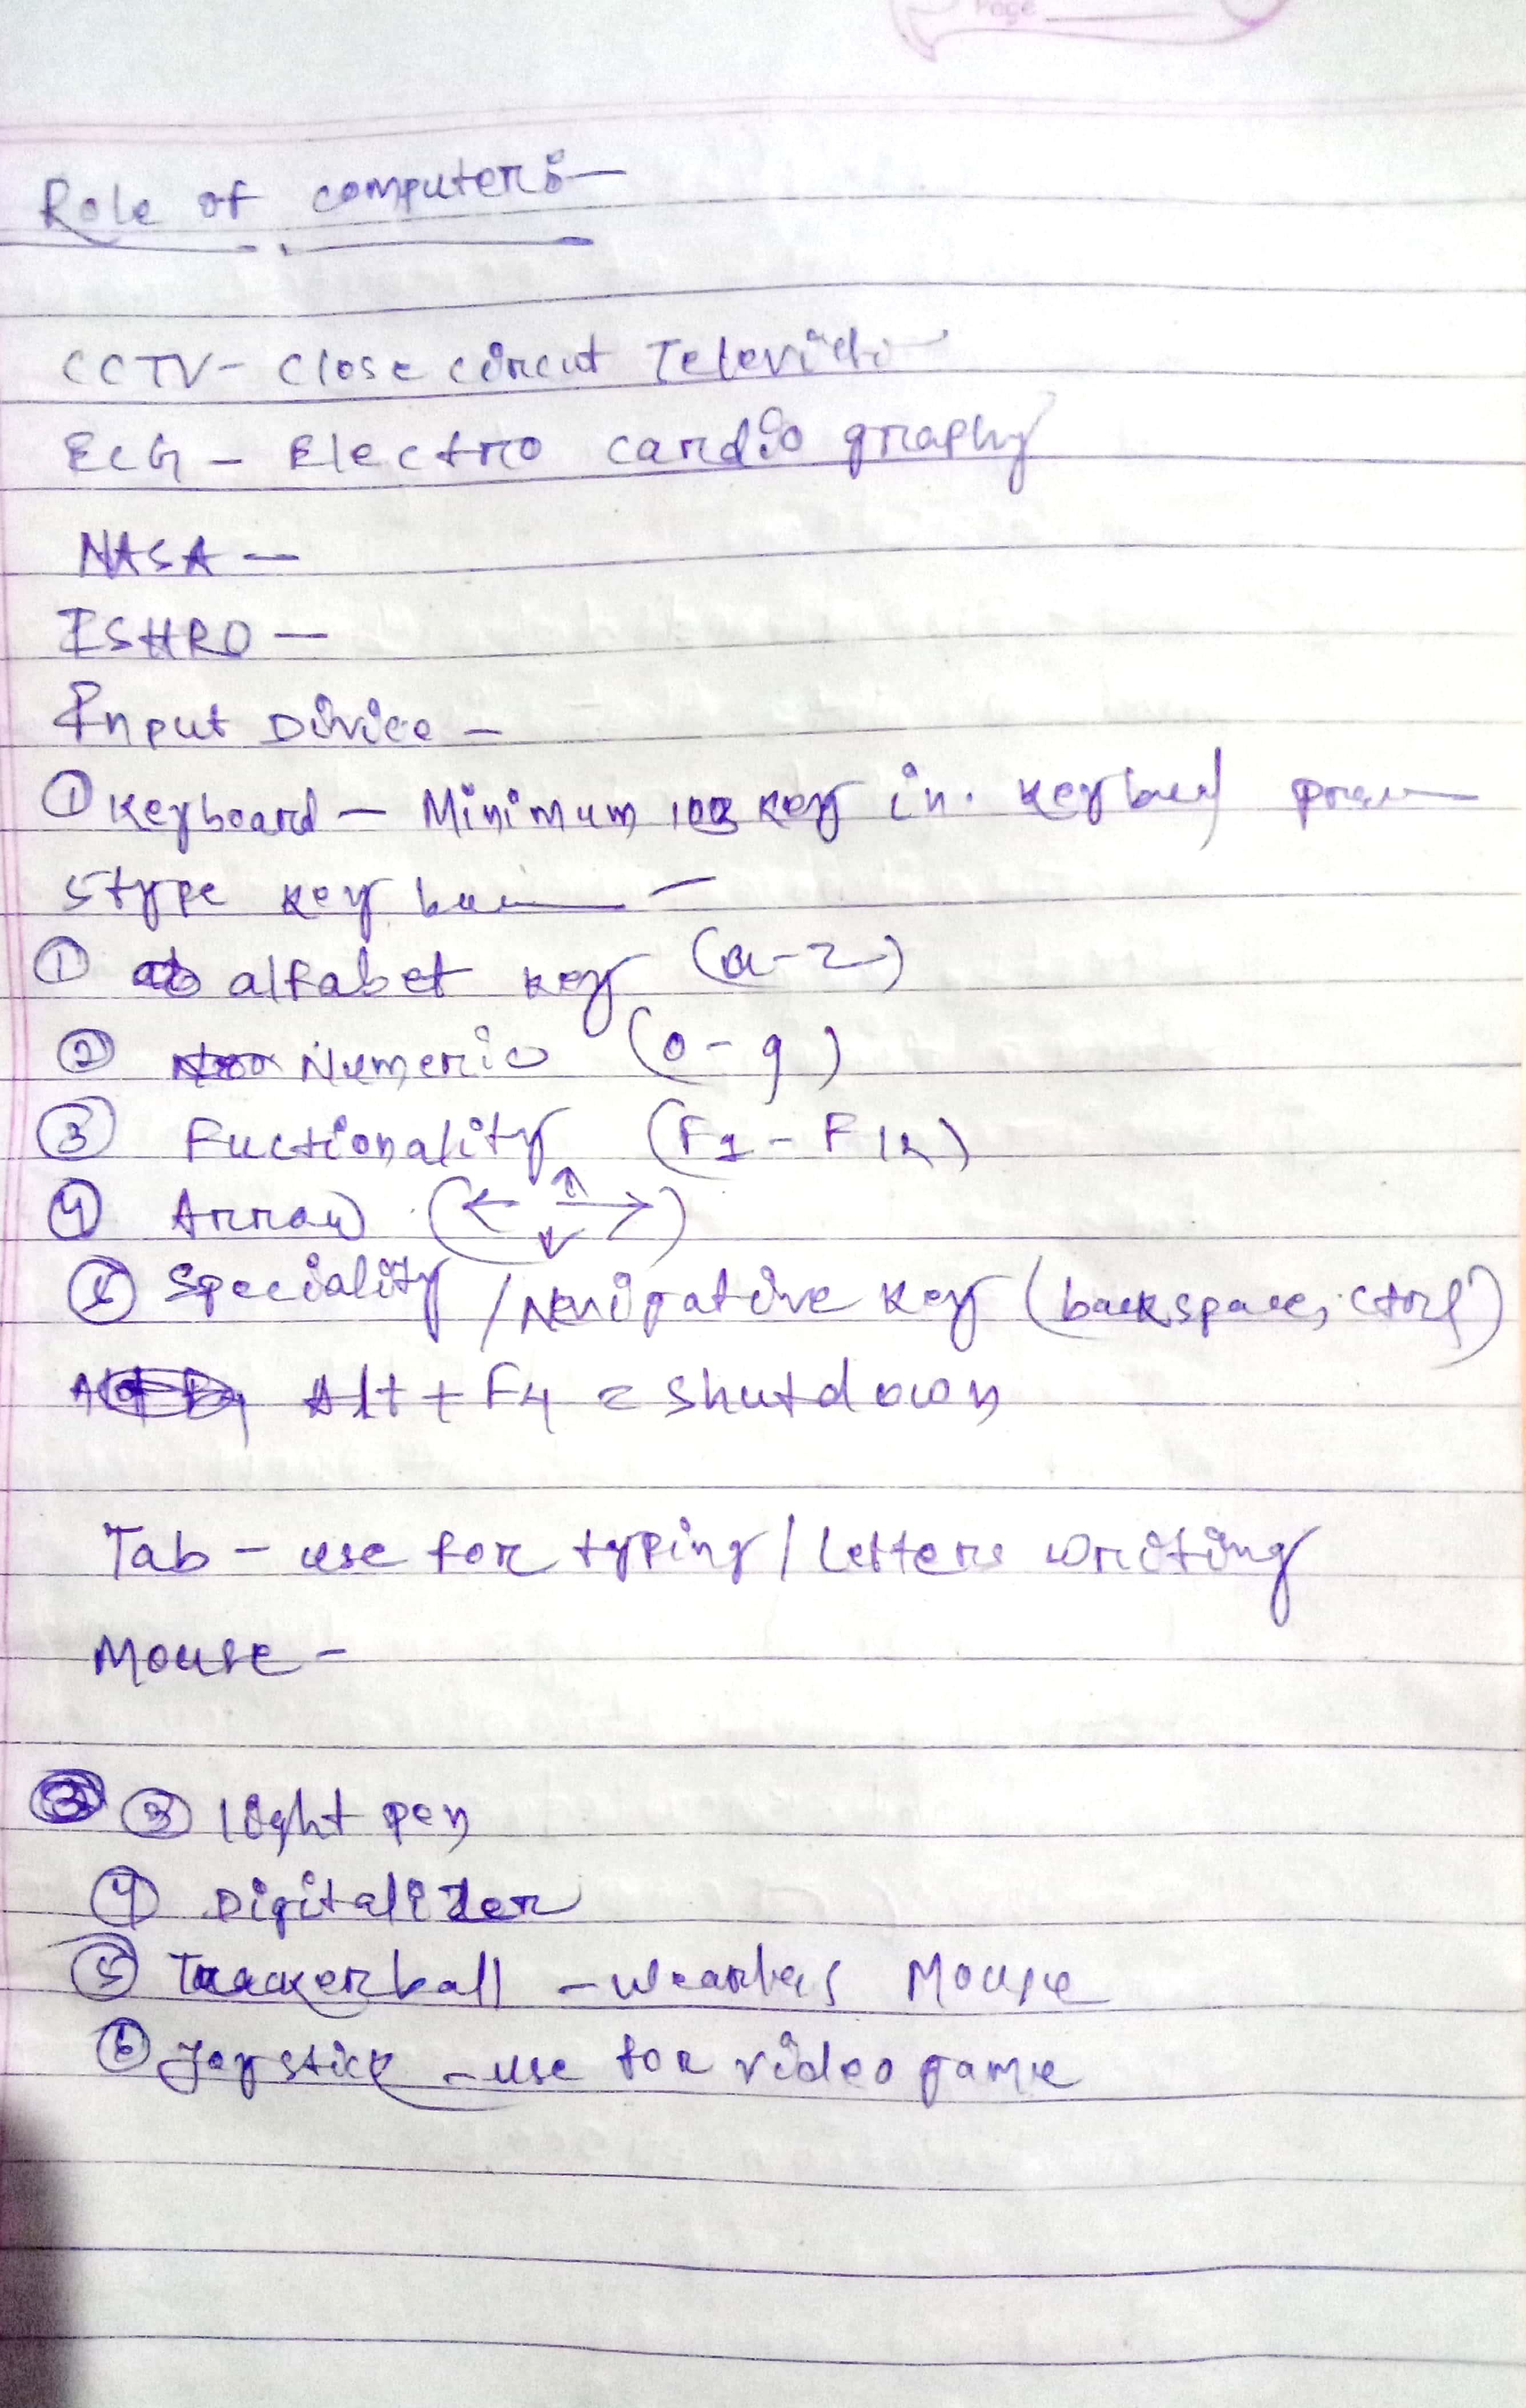 Page
Role of computers—
CCTV - Close circut Televi
ECG - Electro cardio graphy
NASA —
ISHRO —
Input Divice —
① Keyboard — Minimum key in.
5 type key
① alfabet key (a-z)
② Numeric (0-9)
③ Fuctionality (F1 - F12)
④ Arrow (← ↑ ↓ →)
⑤ Speciality / Navigative key (backspace, ctrl)
Alt + F4 = shutdown
Tab - use for typing / letters writing
Mouse -
③ light pen
④ Digitalizer
⑤ Trackerball - Mouse
⑥ Joystick - use for video game